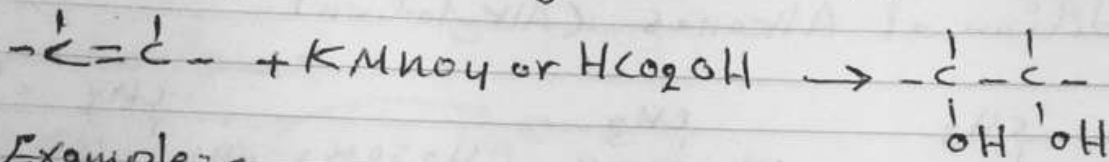 -C=C- + KMnO4 or HCO2OH → -C-C-
OH OH
Example:-